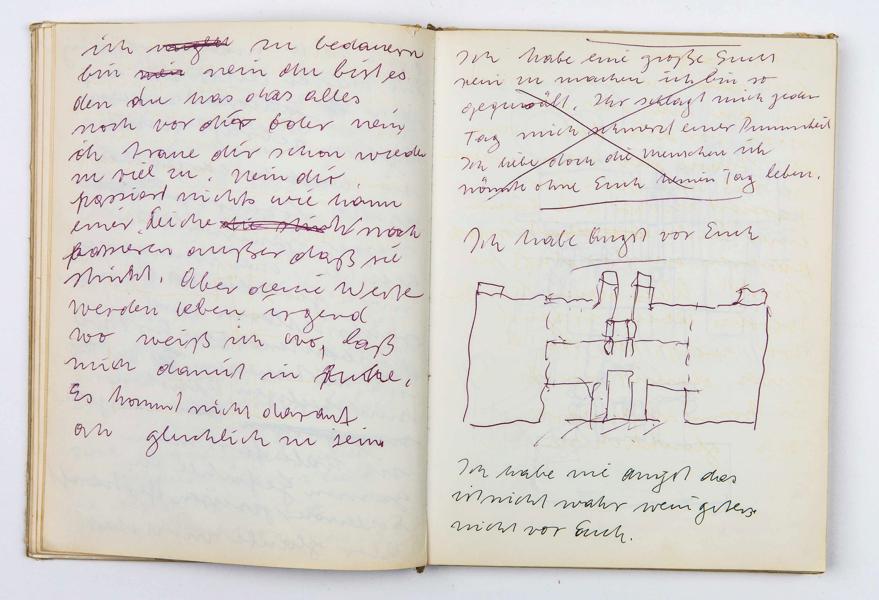 ich zu bedauern
bin nein nein du bist es
den du has das alles
noch vor dir oder nein
ich traue dir schon wieder
zu viel zu. Nein dir
passiert nichts wie kann
einer Leiche noch
passieren außer daß sie
stinkt. Aber deine Werke
werden leben irgend
wo weiß ich wo, laß
mich damit in Ruhe,
Es kommt nicht darauf
an glücklich zu sein.
Ich habe eine große Euch
rein zu machen ich bin so
gequält. Ihr schlagt mich jeden
Tag mich einer Dummheit
Ich liebe doch die Menschen ich
könnte ohne Euch keinen Tag leben.
Ich habe Angst vor Euch
Ich habe nie Angst das
ist nicht wahr wenigstens
nicht vor Euch.